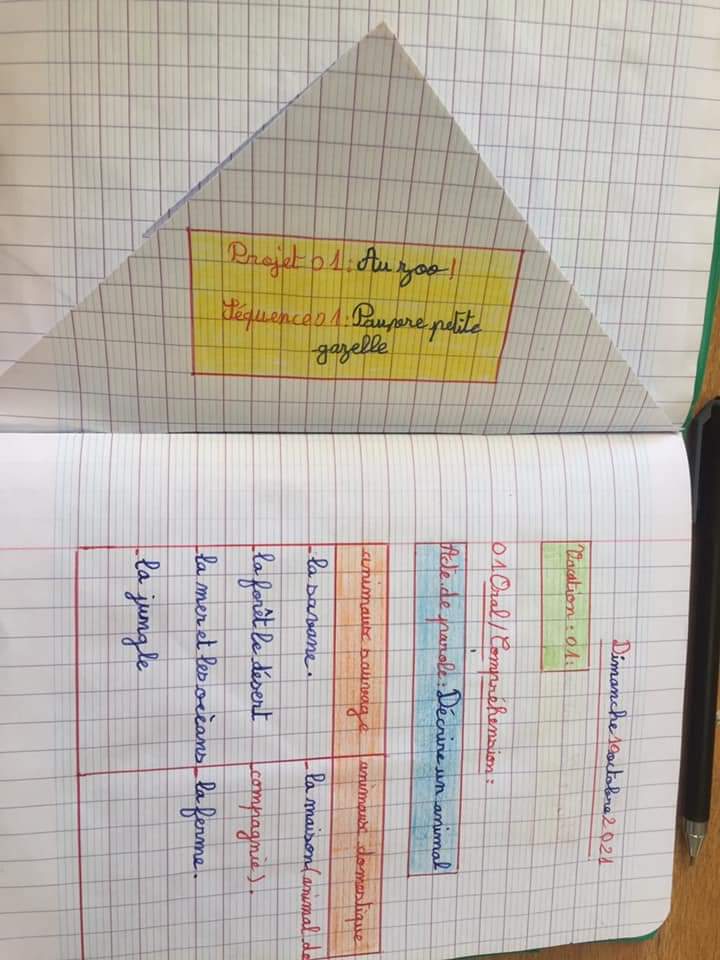 Projet 01: Au zoo!
Séquence 01: Pauvre petite
gazelle
Dimanche 10 octobre 2021
Vacation: 01:
01 Oral / Compréhension:
Acte de parole: Décrire un animal
animaux sauvage animaux domestique
- la savane. - la maison (animal de
- la forêt le désert - compagnie).
- la mer et les océans - la ferme.
- la jungle